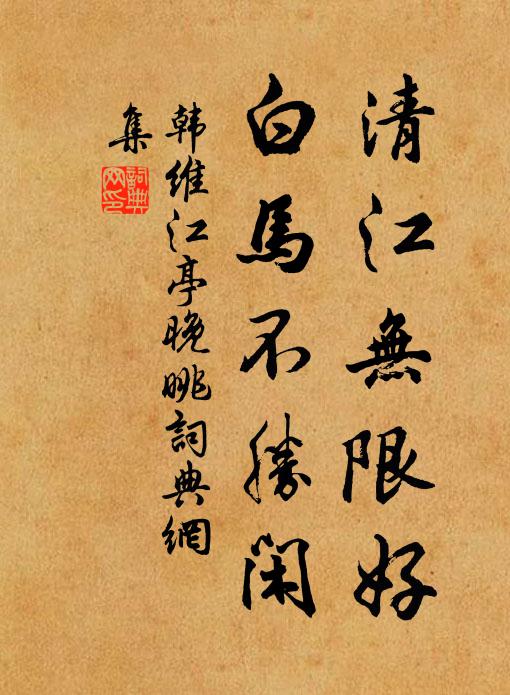 清江無限好
白馬不勝閑
韩維江亭晚眺詞典網
集
詞典網印